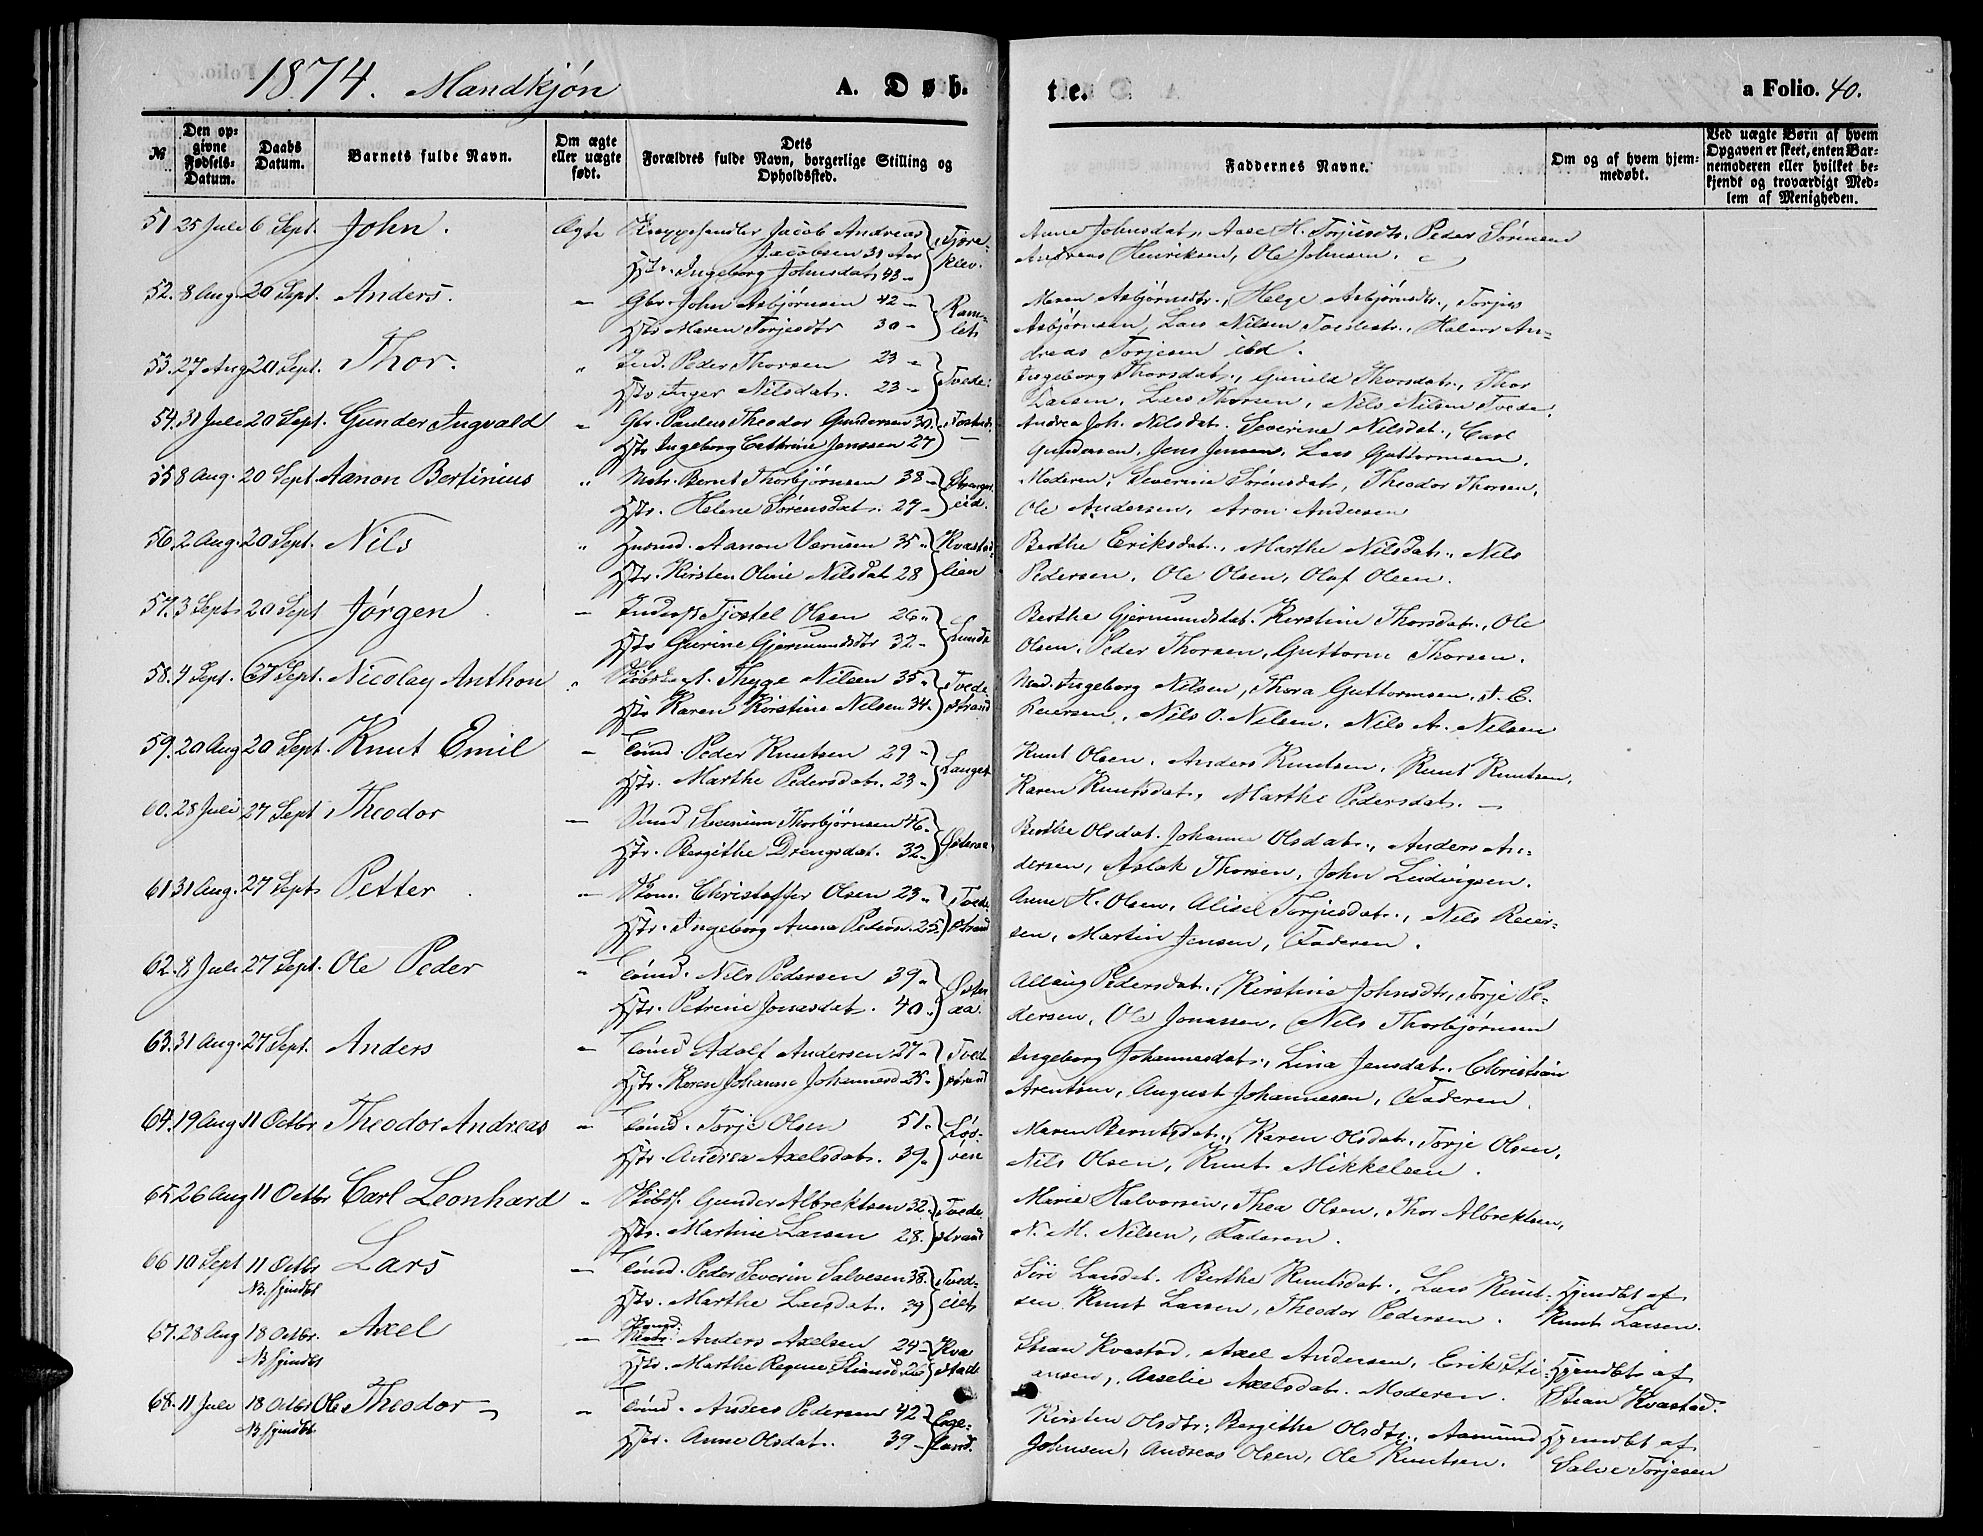 1874. Mandkjøn A. Døb-
te. a Folio. 40.
№ Den op-
givne
Fødsels-
Datum. Daabs
Datum. Barnets fulde Navn. Om ægte
eller uægte
født. Dets
Forældres fulde Navn, borgerlige Stilling og
Opholdssted.
Faddernes Navne. Om og af hvem hjem-
medøbt. Ved uægte Børn af hvem
Opgaven er skeet, enten Bar-
nemoderen eller hvilket be-
kjendt og troværdigt Med-
lem af Menigheden.
51 25 Juli 6 Sept. John. Ægte Jacob Andreas
Jacobsen 31 Aar
Hstr. Ingeborg Johnsdat. 43 Fjære-
klev.
Anne Johnsdat., Aase H. Torjusdtr. Peder Sørensen
Andreas Henriksen, Ole Johnsen.
52. 8 Aug. 20 Sept. Anders. " Gbr. John Asbjørnsen 42 "
Hstr Maren Torjesdtr 30 " Ram-
let
Maren Asbjørnsdtr., Helge Asbjørnsdtr., Torjus
Asbjørnsen, Lars Nilsen Tvedestr., Halvor An-
dreas Torjesen ibd.
53. 27 Aug 20 Sept. Thor. " Ind. Peder Thorsen 23 "
Hstr Inger Nilsdat. 23 " Tvede.
Ingeborg Thorsdat., Gunild Thorsdat., Thor
Larsen, Lars Thorsen, Nils Nilsen Tvede.
54. 31 Juli 20 Sept. Gunder Ingvald " Gbr. Paulus Theodor Gundersen 30.
Hstr Ingeborg Cathrine Jenssen 27
Andrea Joh. Nilsdat. Severine Nilsdat., Carl
Gundersen, Jens Jensen, Lars Guttormsen.
55 8 Aug. 20 Sept. Aanon Bertinius " Matr. Bernt Thorbjørnsen 38 "
Hstr. Helene Sørensdat. 27 "
Moderen, Severine Sørensdat., Theodor Thorsen,
Ole Andersen, Aron Andersen
56. 2 Aug. 20 Sept. Nils " Husmd. Aanon 35 "
Hstr. Kirsten Oline Nilsdat 28 Kvastad-
lien
Berthe Eriksdat., Marthe Nilsdat., Nils
Pedersen, Ole Olsen, Olaf Olsen.
57. 3 Sept. 20 Sept Jørgen. " Tjøstel Olsen 26 "
Hstr Gurine Gjermundsdtr 32 " Lunde
Berthe Gjermundsdat. Kirstine Thorsdat., Ole
Olsen, Peder Thorsen, Guttorm Thorsen.
58. 4 Sept. 27 Sept. Nicolay Anthon " Thyge Nilsen 35 "
Hstr Karen Kirstine Nilsen 34. Tvede
strand
Mad. Ingeborg Nilsen, Thora Guttormsen, A. E.
Reiersen, Nils O. Nilsen, Nils A. Nilsen
59. 20 Aug 20 Sept. Knut Emil " Tømd. Peder Knutsen 29 "
Hstr. Marthe Pedersdat. 23 " Langet
Knut Olsen, Anders Knutsen, Knut Knutsen,
Karen Knutsdat., Marthe Pedersdat.
60. 28 Juli 27 Sept Theodor " Severin Thorbjørnsen 46.
Hstr. Bergithe Drengsdat. 32 " Østeraa
Berthe Olsdat. Johanne Olsdat., Anders An-
dersen, Aslak Thorsen, John Ludvigsen.
61 31 Aug. 27 Sept. Petter. " Skom. Christoffer Olsen 23 "
Hstr. Ingeborg Anna Peders. 25. Tvede
strand
Anne H. Olsen, Alisel Torjusdat., Nils Reier-
sen, Martin Jensen, Faderen.
62. 8 Juli 27 Sept. Ole Peder " Tømd. Nils Pedersen 39 "
Hstr. Petrine Jonasdat. 40. Øster
aa.
Allaug Pedersdat., Kirstine Johnsdtr., Torje Pe-
dersen, Ole Jonassen, Nils Thorbjørnsen
63. 31 Aug. 27 Sept. Anders " Tømd Adolf Andersen 27 "
Hstr. Karen Johanne Johannesd. 25. Tvede
strand
Ingeborg Johannesdat., Lina Jensdat. Christian
Arentsen, August Johannesen, Faderen.
64. 19 Aug 11 Octbr Theodor Andreas " Tømd. Torje Olsen 51.
Hstr. Andrea Axelsdat. 39.
Maren Berntsdat., Karen Olsdat., Torje Olsen,
Nils Olsen, Knut Mikkelsen.
65. 26 Aug 11 Octbr Carl Leonhard " Skibsf. Gunder Albrektsen 32.
Hstr. Martine Larsen 28. Tvede
strand
Marie Halvorsen, Thea Olsen, Thor Albrektsen,
N. M. Nilsen, Faderen.
66 10 Sept 11 Octbr
NB. hjemdbt Lars " Tømd. Peder Severin Salvesen 38.
Hstr. Marthe Larsdat. 39
Siri Larsdat. Berthe Knutsdat., Lars Knut-
sen. Knut Larsen, Theodor Pedersen. Hjemdbt af
Knut Larsen.
67. 28 Aug 18 Octbr.
NB hjemdbt Axel " Anders Axelsen 24
Hstr. Marthe Regine Stiansd. 26 Kva
stad
Stian Kvastad, Axel Andersen, Erik Sti-
ansen, Asselie Axelsdat. Moderen. Hjemdbt af
Stian Kvastad.
68. 11 Juli 18 Octbr
NB. hjemdbt Ole Theodor " Tømd. Anders Pedersen 42
Hstr. Anne Olsdat. 39 Enge-
land.
Kirsten Olsdtr., Bergithe Olsdtr., Aamund
Johnsen, Andreas Olsen, Ole Knutsen. Hjemdbt af
Salve Torjesen